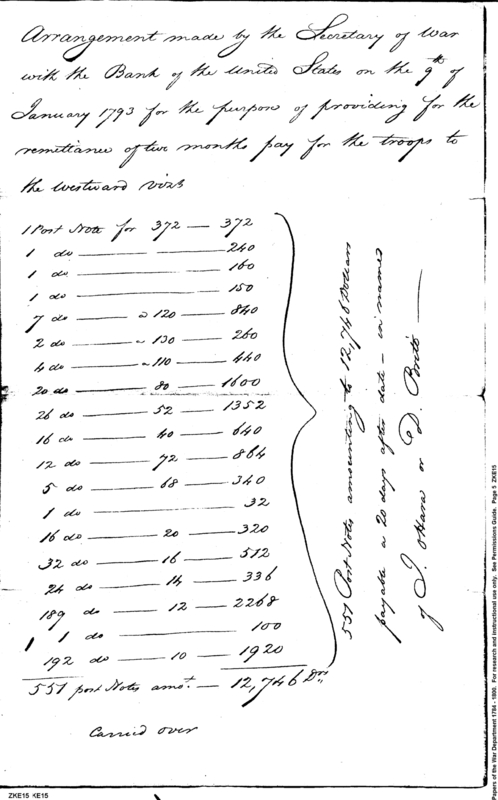 Arrangement made by the Secretary of War
with the Bank of the United States on the 9th of
January 1793 for the purpose of providing for the
remittance of two months pay for the troops to
the westward vizt
1 Post Note for 372 — 372
1 do — 240
1 do — 160
1 do — 150
7 do — a 120 — 840
2 do — 130 — 260
4 do — 110 — 440
20 do — 80 — 1600
26 do — 52 — 1352
16 do — 40 — 640
12 do — 72 — 864
5 do — 68 — 340
1 do — 32
16 do — 20 — 320
32 do — 16 — 512
24 do — 14 — 336
189 do — 12 — 2268
1 do — 100
192 do — 10 — 1920
551 post Notes amot. — 12,746 Drs
Carried over
551 Post Notes amounting to 12,746 Dollars
payable a 20 days after date – in names
of J. oHara or D.
ZKE15 KE15
Papers of the War Department 1784 - 1800. For research and instructional use only. See Permissions Guide. Page 5 ZKE15